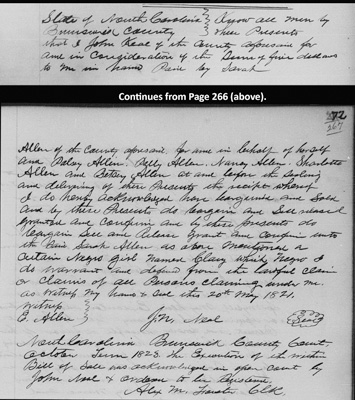 State of North Carolina } Know all men by
Brunswick County } these Presents
that I John Neal of the County aforesaid for
and in Consideration of the Sum of five dollars
to me in hand Paid by Sarah
Continues from Page 266 (above).
267
Allen of the County aforesaid for and in behalf of herself
and Patsy Allen, Polly Allen, Nancy Allen, Sharlotte
Allen and Betsey Allen at and before the Sealing
and delivering of these Presents the receipt whereof
I do hereby acknowledge have bargained and Sold
and by these Presents do bargain and Sell released
granted and Confirm and by these presents do
bargain Sell and Release Grant and Confirm unto
the Said Sarah Allen as above mentioned a
Certain Negro Girl named Clary which Negro I
do Warrant and defend from the lawful Claim
or Claims of all Persons claiming under me
as Witness My hand & Seal this 20th May 1821.
Witness }
B. Allen } Jno Neal {Seal}
North Carolina Brunswick County Court
October Term 1823 the Execution of the within
Bill of Sale was acknowledged in open Court by
John Neal & ordered to be Registered
Alex M. Clk.